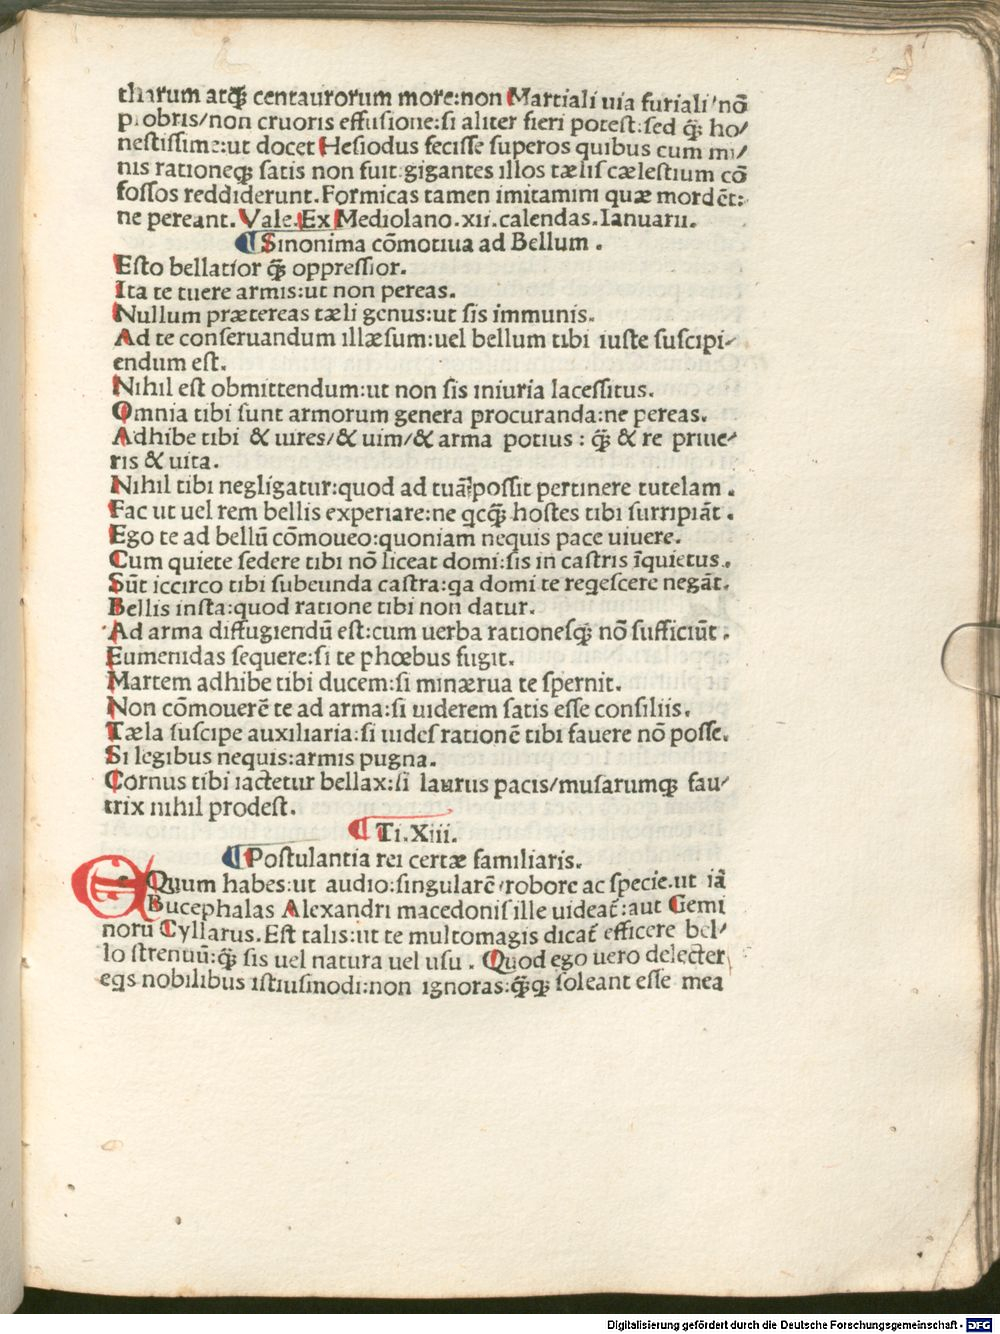 tharum atq̃ centaurorum more:non Martiali uia furiali/nõ
probris/non cruoris effusione:si aliter fieri potest:sed q̃ ho/
nestissime:ut docet Hesiodus fecisse superos quibus cum mi/
nis rationeq; satis non fuit:gigantes illos tælis cælestium cõ
fossos reddiderunt.Formicas tamen imitamini quæ mordẽt:
ne pereant.Vale.Ex Mediolano.xii.calendas.Ianuarii.
¶Sinonima cõmotiua ad Bellum.
Esto bellatior q̃ oppressior.
Ita te tuere armis:ut non pereas.
Nullum prætereas tæli genus:ut sis immunis.
Ad te conseruandum illæsum:uel bellum tibi iuste suscipi-
endum est.
Nihil est obmittendum:ut non sis iniuria lacessitus.
Omnia tibi sunt armorum genera procuranda:ne pereas.
Adhibe tibi & uires/& uim/& arma potius: q̃ & re priue-
ris & uita.
Nihil tibi negligatur:quod ad tuã possit pertinere tutelam.
Fac ut uel rem bellis experiare:ne qcq̃ hostes tibi surripiãt.
Ego te ad bellũ cõmoueo:quoniam nequis pace uiuere.
Cum quiete sedere tibi nõ liceat domi:sis in castris ĩquietus.
Sũt iccirco tibi subeunda castra:qa domi te reqescere negãt.
Bellis insta:quod ratione tibi non datur.
Ad arma diffugiendũ est:cum uerba rationesq; nõ sufficiũt.
Eumenidas sequere:si te phœbus fugit.
Martem adhibe tibi ducem:si minærua te spernit.
Non cõmouerẽ te ad arma:si uiderem satis esse consiliis.
Tæla suscipe auxiliaria:si uides rationẽ tibi fauere nõ posse.
Si legibus nequis:armis pugna.
Cornus tibi iactetur bellax:si laurus pacis/musarumq; fau-
trix nihil prodest.
¶Ti.Xiii.
¶Postulantia rei certæ familiaris.
EQuum habes:ut audio:singularẽ/robore ac specie.ut iã
Bucephalas Alexandri macedonis ille uideat̃:aut Gemi
norũ Cyllarus.Est talis:ut te multomagis dicat̃ efficere bel/
lo strenuũ:q̃ sis uel natura uel usu. Quod ego uero delecter
eqs nobilibus istiusmodi:non ignoras:q̃q; soleant esse mea
Digitalisierung gefördert durch die Deutsche Forschungsgemeinschaft - DFG